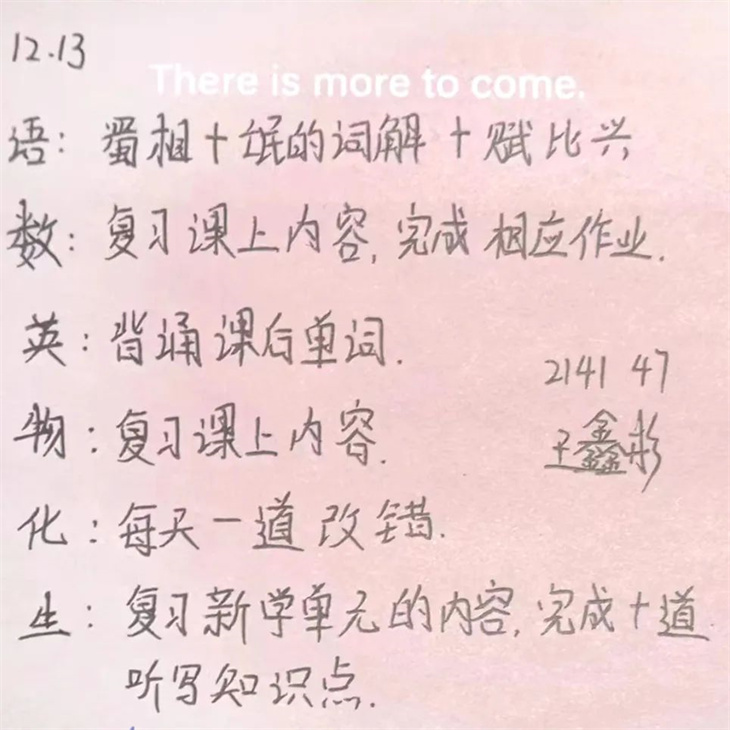 12.13
There is more to come.
语：蜀相十氓的词解十赋比兴
数：复习课上内容,完成相应作业.
英：背诵课后单词.
2141 47
物：复习课上内容.
王鑫彬
化：每天一道改错.
生：复习新学单元的内容,完成十道
听写知识点.